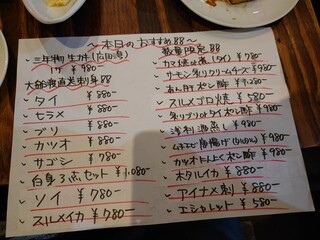 〜本日のおすすめ88〜
三年物 生カキ(広田湾)
1ケ ¥980-
大船渡直送刺身88
タイ ¥880-
ヒラメ ¥880-
ブリ ¥880-
カツオ ¥880-
サゴシ ¥780-
白身3点セット ¥1,080-
ソイ ¥780-
スルメイカ ¥780-
数量限定88
カマ焼き(タイ) ¥780-
サーモンクリームチーズ ¥980-
あん肝ポン酢 ¥1,280-
スルメゴロ焼 ¥580-
ポン酢 ¥980-
浅利酒蒸し ¥980-
唐揚げ ¥980-
カツオ にんにくポン酢 ¥980-
ホタルイカ ¥880-
アイナメ刺 ¥880-
エシャレット ¥580-